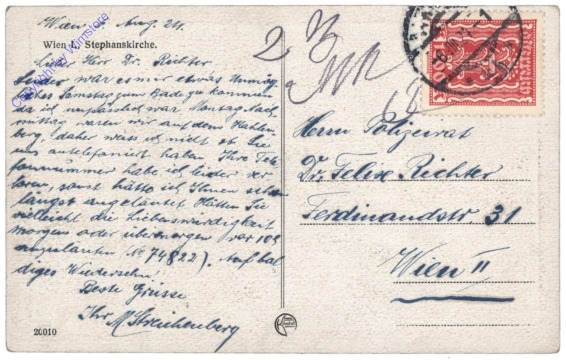 Wien 5. Aug. 24.
Wien I. Stephanskirche.
Lieber Herr Dr. Richter
Leider war es mir etwas Unmög-
liches Samstag zum Bade zu kommen
da ich unpässlich war Montag Nach-
mittag waren wir auf dem Kahlen-
berg, daher weiss ich nicht ob Sie
uns antelefoniert haben Ihre Tele-
fonnummer habe ich leider ver-
loren, sonst hätte ich Ihnen schon
längst angeläutet Hätten Sie
vielleicht die Liebenswürdigkeit
morgen oder übermorgen vor 10h
anzuläuten (No 74822). Auf bal-
diges Wiedersehn!
Beste Grüsse
Ihr M. Streichenberg
20010
Herrn Polizeirat
Dr. Felix Richter
Ferdinandstr. 31
Wien II